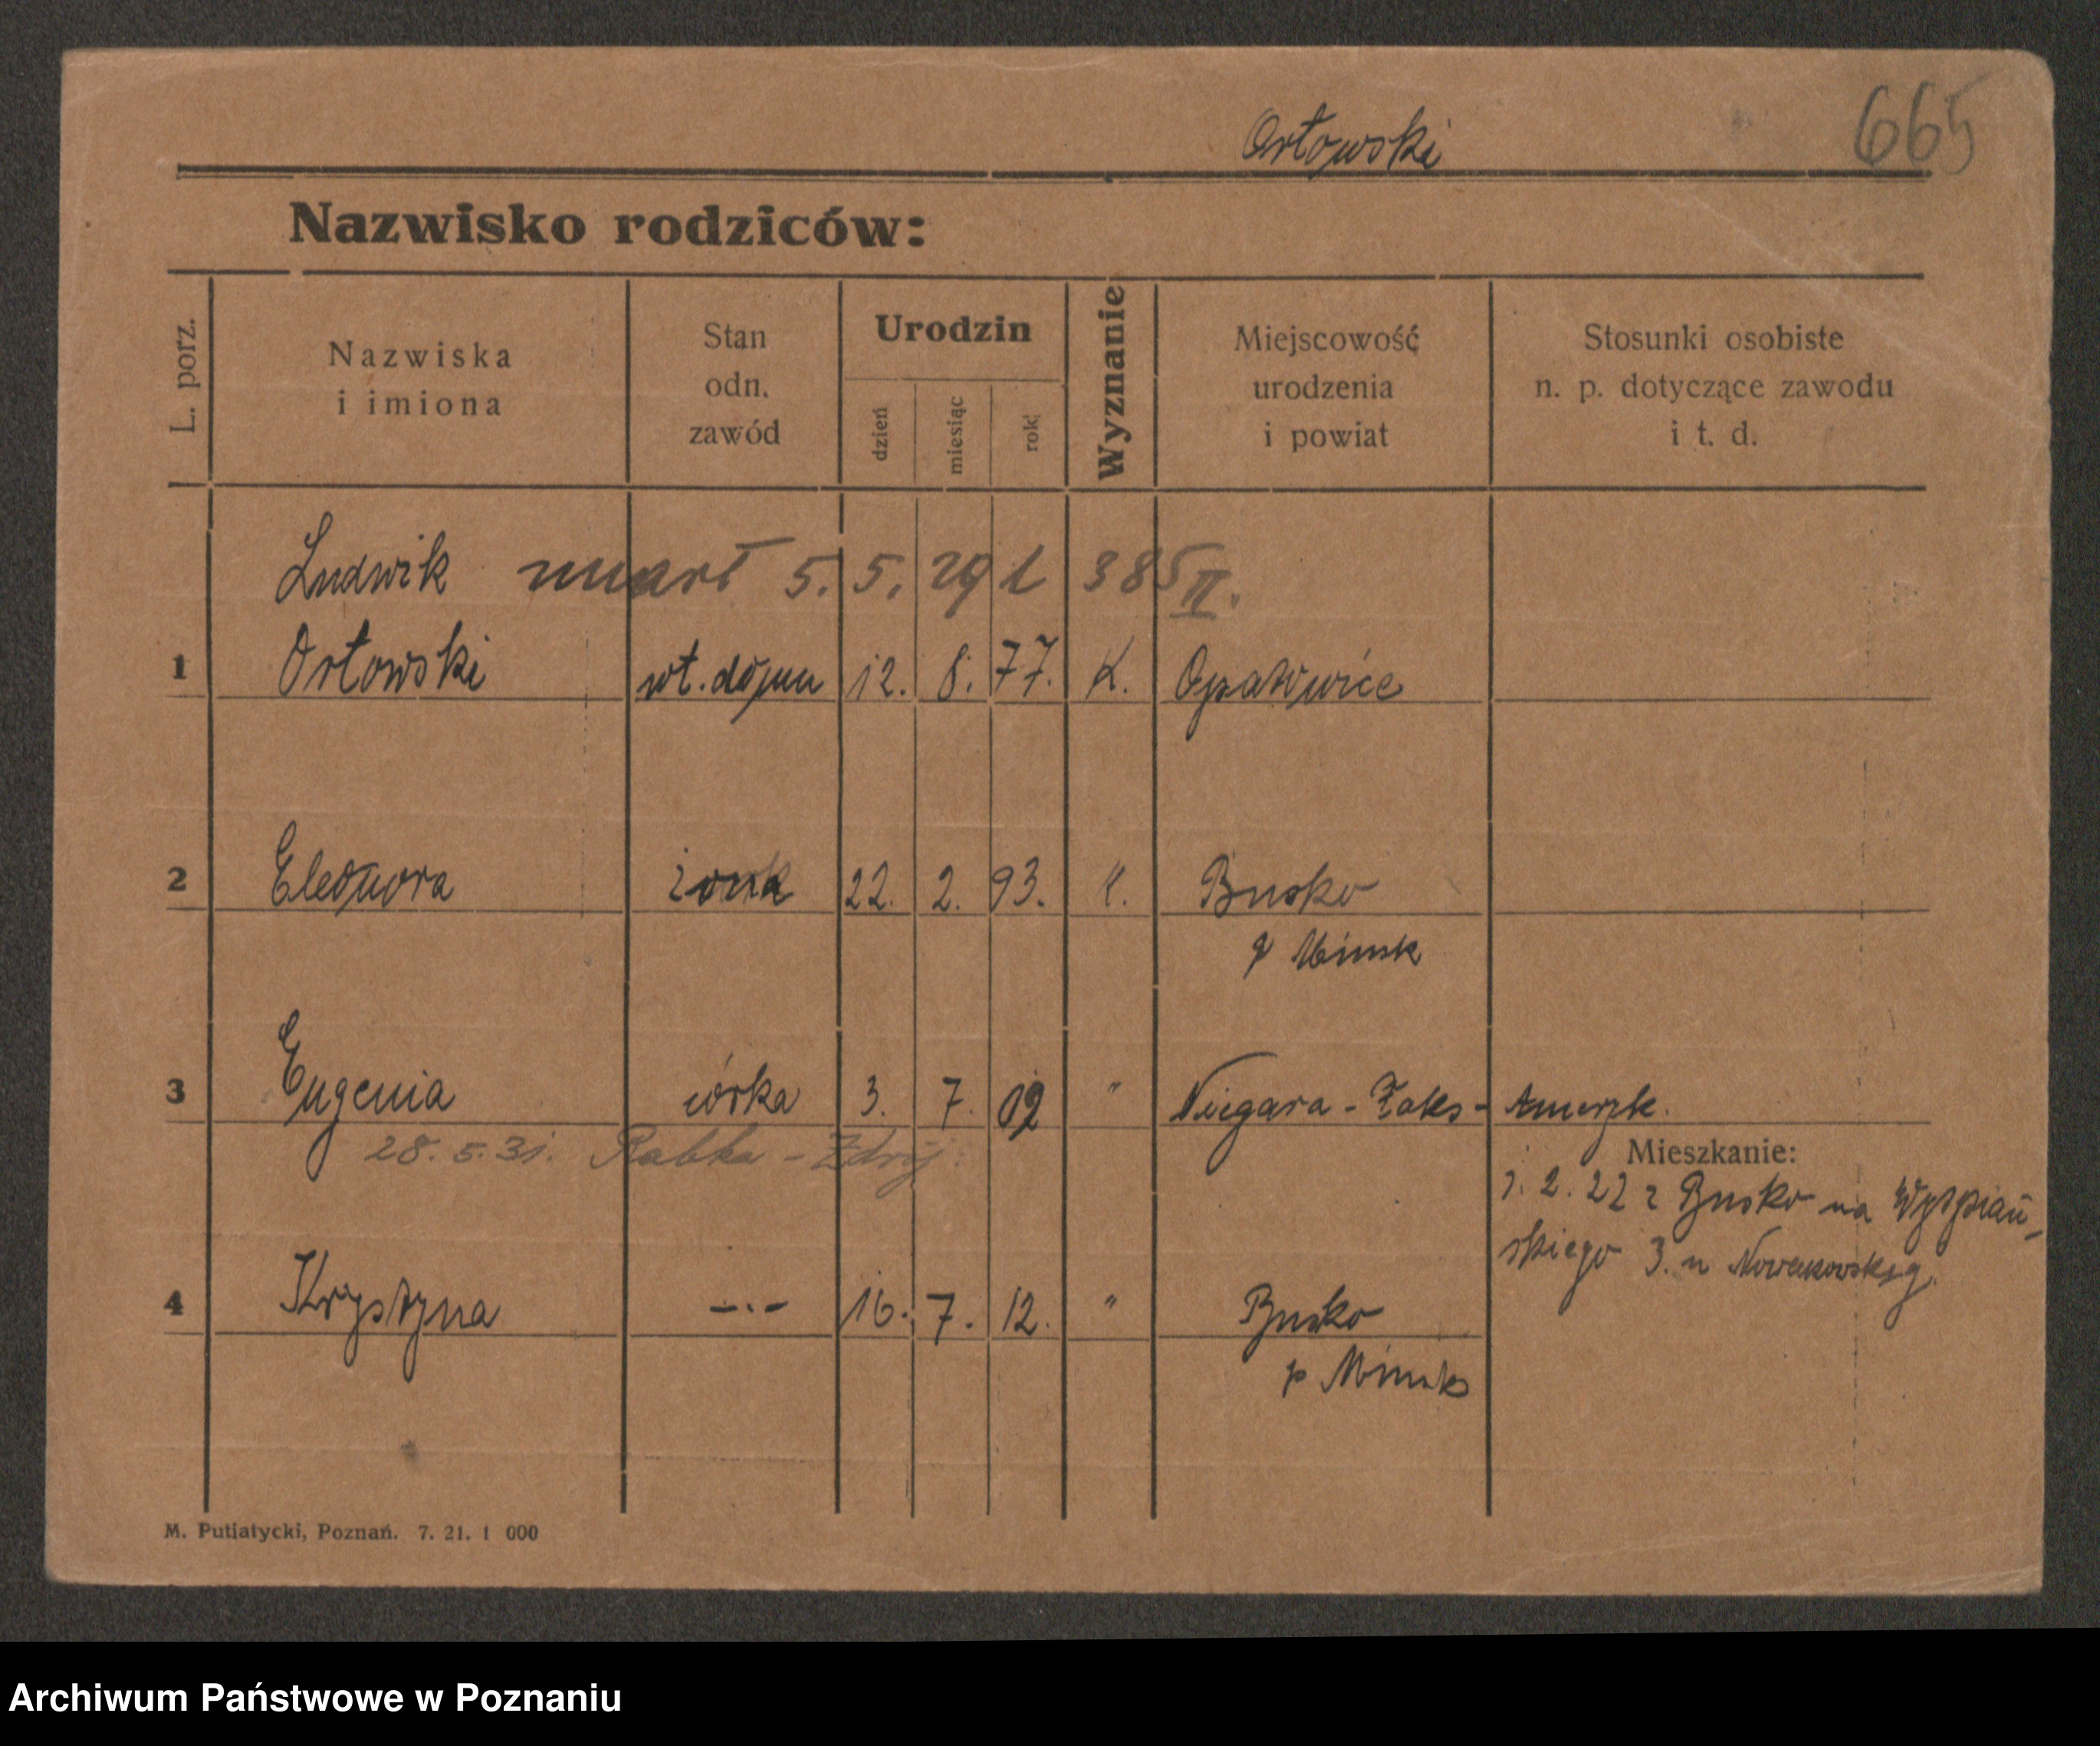 Orłowski
665
Nazwisko rodziców:
L. porz.
Nazwiska
i imiona
Stan
odn.
zawód
Urodzin
dzień
miesiąc
rok
Wyznanie
Miejscowość
urodzenia
i powiat
Stosunki osobiste
n. p. dotyczące zawodu
i t. d.
Ludwik umarł 5. 5. 29 385 II.
1 Orłowski wł. domu 12. 8. 77. K. Opatowice
2 Eleonora żona 22. 2. 93. K. Busko
p Minsk
3 Eugenia córka 3. 7. 09 " Niegara - Faks - Ameryk.
28. 5. 31. Rabka - Zdrój.
Mieszkanie:
1. 2. 22 z Busko na Wyspiań-
skiego 3. u Nowakowskieg.
4 Krystyna -·- 16. 7. 12. " Busko
p Minsk
M. Putiatycki, Poznań. 7. 21. 1 000
Archiwum Państwowe w Poznaniu